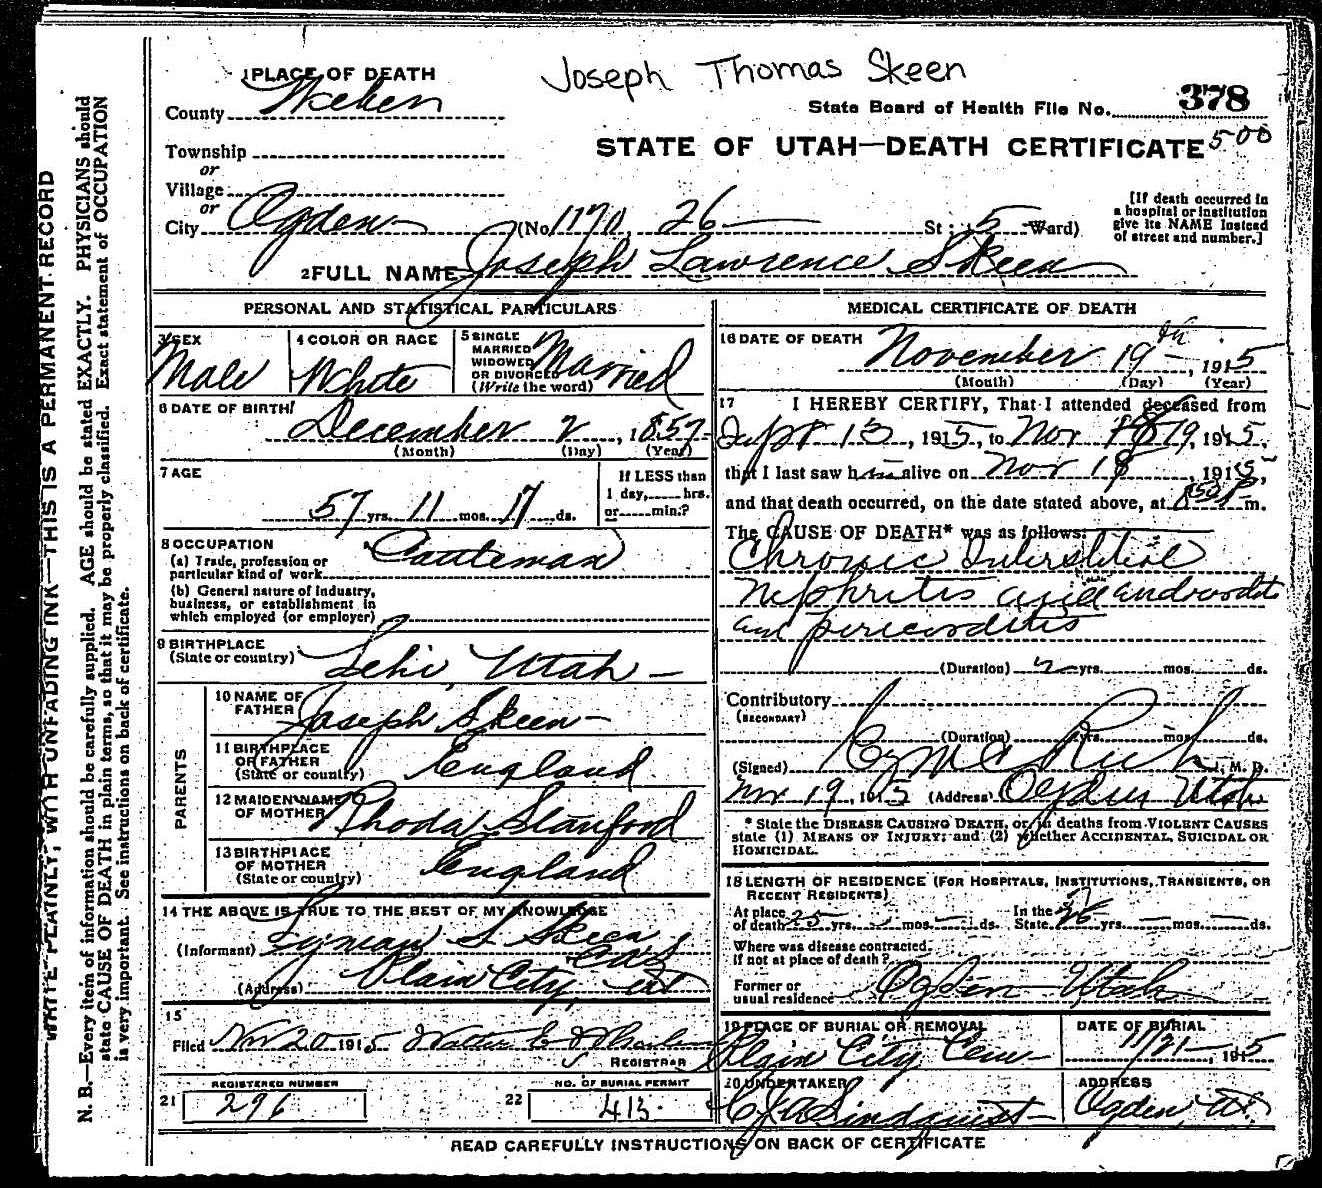 Joseph Thomas Skeen
1 PLACE OF DEATH
County Weber
State Board of Health File No. 378
500
STATE OF UTAH—DEATH CERTIFICATE
Township
or
Village
or
City Ogden (No. 1170, 26 St.; 5 Ward)
[If death occurred in
a hospital or institution
give its NAME instead
of street and number.]
2 FULL NAME Joseph Lawrence Skeen
PERSONAL AND STATISTICAL PARTICULARS
3 SEX
Male
4 COLOR OR RACE
White
5 SINGLE
MARRIED
WIDOWED
OR DIVORCED
(Write the word)
Married
6 DATE OF BIRTH
December 2, 1857
(Month) (Day) (Year)
7 AGE
57 yrs. 11 mos. 17 ds.
If LESS than
1 day, hrs.
or min.?
8 OCCUPATION
(a) Trade, profession or
particular kind of work Cattleman
(b) General nature of industry,
business, or establishment in
which employed (or employer)
9 BIRTHPLACE
(State or country) Lehi, Utah
PARENTS
10 NAME OF
FATHER Joseph Skeen
11 BIRTHPLACE
OF FATHER
(State or country) England
12 MAIDEN NAME
OF MOTHER Rhoda Stanford
13 BIRTHPLACE
OF MOTHER
(State or country) England
14 THE ABOVE IS TRUE TO THE BEST OF MY KNOWLEDGE
(Informant) Lyman S Skeen
(Address) Plain City, Ut
15
Filed Nov 20 1915
REGISTRAR
REGISTERED NUMBER
21 296
NO. OF BURIAL PERMIT
22 413
MEDICAL CERTIFICATE OF DEATH
16 DATE OF DEATH
November 19th, 1915
(Month) (Day) (Year)
17 I HEREBY CERTIFY, That I attended deceased from
Sept 13, 1915, to Nov 19, 1915,
that I last saw him alive on Nov 18, 1915,
and that death occurred, on the date stated above, at m.
The CAUSE OF DEATH* was as follows:
Chronic Interstitial
Nephritis and endocarditis
and pericarditis
(Duration) 2 yrs. mos. ds.
Contributory
(SECONDARY)
(Duration) yrs. mos. ds.
(Signed) Rich, M. D.
Nov 19, 1915 (Address) Ogden Utah
* State the DISEASE CAUSING DEATH, or, in deaths from VIOLENT CAUSES
state (1) MEANS OF INJURY; and (2) whether ACCIDENTAL, SUICIDAL OR
HOMICIDAL.
18 LENGTH OF RESIDENCE (FOR HOSPITALS, INSTITUTIONS, TRANSIENTS, OR
RECENT RESIDENTS)
At place
of death 25 yrs. mos. ds.
In the
State yrs. mos. ds.
Where was disease contracted
if not at place of death?
Former or
usual residence Ogden Utah
19 PLACE OF BURIAL OR REMOVAL
Plain City Cem
DATE OF BURIAL
11/21, 1915
20 UNDERTAKER
Lindquist
ADDRESS
Ogden, Ut.
READ CAREFULLY INSTRUCTIONS ON BACK OF CERTIFICATE
WRITE PLAINLY, WITH UNFADING INK—THIS IS A PERMANENT RECORD
N. B.—Every item of information should be carefully supplied. AGE should be stated EXACTLY. PHYSICIANS should
state CAUSE OF DEATH in plain terms, so that it may be properly classified. Exact statement of OCCUPATION
is very important. See instructions on back of certificate.